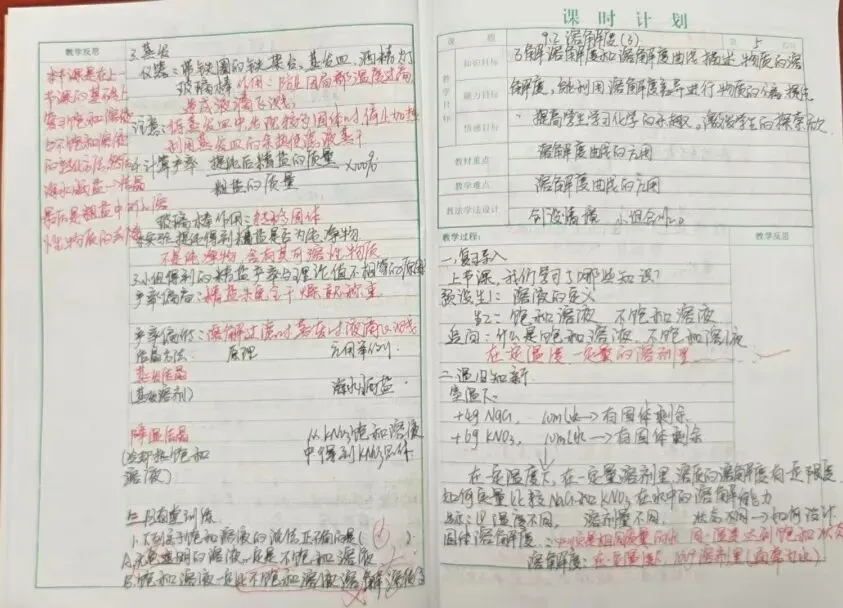 教学反思
本节课是在上一
节课的基础上
复习饱和溶液
与不饱和溶液
的转化方法,然后
海水晒盐
3.蒸发
仪器:带铁圈的铁架台、蒸发皿、酒精灯
玻璃棒作用:防止因局部温度过高
造成液滴飞溅
注意:待蒸发皿中出现较多固体时,停止加热
利用蒸发皿的余热使滤液蒸干
4.计算产率 提纯后精盐的质量 ×100%
粗盐的质量
玻璃棒作用:转移固体
实验提纯得到精盐是否为纯净物
不是纯净物,含有其可溶性物质
3.小组得到的精盐产率与理论值不相等的原因
产率偏高:精盐未完全干燥就称重
产率偏低:溶解过滤时
结晶方法 原理 应用举例
蒸发结晶
(蒸发溶剂) 海水晒盐
降温结晶 从KNO3饱和溶液
(冷却热饱和 中得到KNO3晶体
溶液)
1.下列关于饱和溶液的说法正确的是( )
A.无色透明的溶液一定是不饱和溶液
B.饱和溶液一定比不饱和溶液溶解
课时计划
课题 9.2 溶解度(3) 第 5
教学目标
知识目标 了解溶解度和溶解度曲线描述物质的溶
能力目标 解度,能利用溶解度差异进行物质的分离提纯
情感目标 提高学生学习化学的兴趣,激发学生的探索欲
教材重点 溶解度曲线的应用
教学难点 溶解度曲线的应用
教法学法设计 创设情境 小组合作
教学过程: 教学反思
一.复习导入
上节课,我们学习了哪些知识?
预设生1:溶液的定义
生2:饱和溶液 不饱和溶液
追问:什么是饱和溶液、不饱和溶液
在一定温度 一定量的溶剂里
二.温旧知新
室温下:
+4g NaCl, 10ml水→有固体剩余
+6g KNO3, 10ml水→有固体剩余
在一定温度下,在一定量溶剂里,溶质的溶解度有一定限度
如何定量比较NaCl和KNO3在水中的溶解能力
温度不同, 溶剂量不同, 状态不同→如何设计
固体溶解度: 相同质量的水 同一温度 达到饱和状态
溶解度:在一定温度下,100g溶剂里